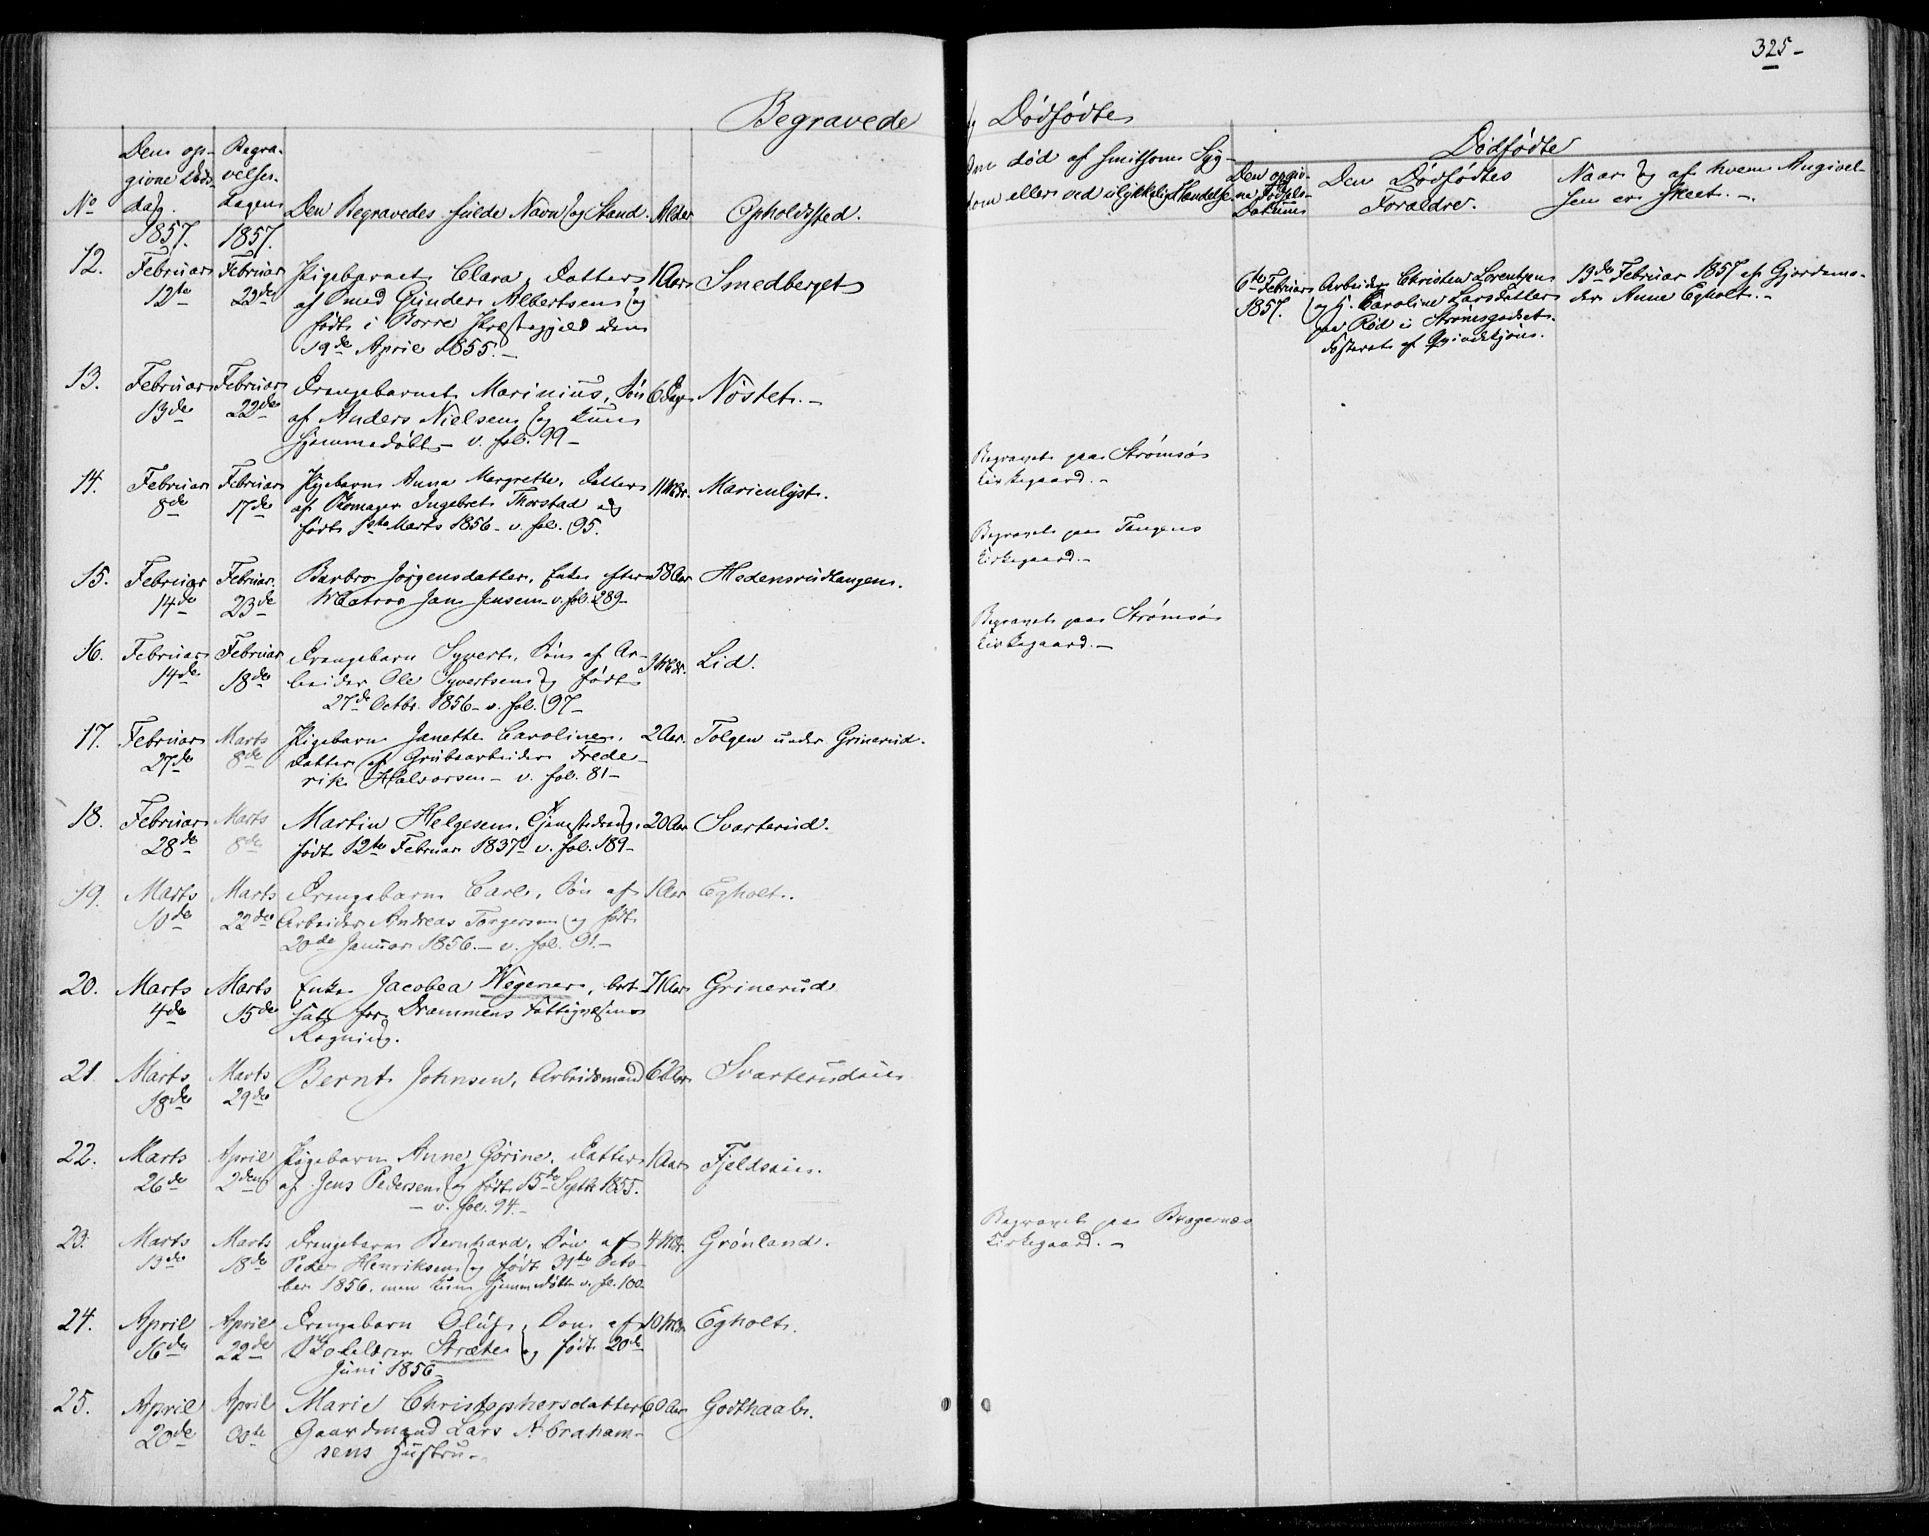 325-
Begravede
og Dødfødte
No
Den op-
givne Døds-
dag.
1857.
Begra-
velses-
dagen
1857.
Den Begravedes fulde Navn og Stand.
Alder
Opholdssted.
død af smitsom Syg-
dom eller ved ulykkelig Hændelse.
Dødfødte
Den opgiv-
ne Fødsels-
Datum
Den Dødfødtes
Forældre.
Naar og af hvem Angivel-
sen er skeet.-
12. Februar 12te Februar 22de Pigebarnet Clara, Datter 1 Aar Smedberget
af Smed Gunder Albertsen og
født i Borre Præstegjeld den
19de April 1855.-
6te Februar 1857.
Arbeider Christen Lorentzen
og H. Caroline Larsdatter
paa Rød i Strømsgodset.
Fosteret af Qvindekjøn.
13de Februar 1857 af Gjordemo-
der Anne Egholt.-
13. Februar 13de Februar 22de Drengebarnet Marinius, Søn 6 Dage Nøstet.-
af Anders Nielsen og kun
hjemmedøbt - v. fol. 99-
14. Februar 8de Februar 17de Pigebarn Anna Margrethe, Datter 11 Mdr. Marienlyst.
af Skomager Ingebret Thorstad og
født 1ste Marts 1856- v. fol. 95.
Begravet paa Strømsø
Kirkegaard.-
15. Februar 14de Februar 23de Barbro Jørgensdatter, Enke efter 58 Aar Hedensrudtangen.
Matros Jan Jensen- v. fol. 289-
Begravet paa Tangens
Kirkegaard.-
16. Februar 14de Februar 18de Drengebarn Syvert, Søn af Ar- 3 Mdr. Lid.
beider Ole Syvertsen og født
27de Octbr. 1856- v. fol. 97-
Begravet paa Strømsø
Kirkegaard.-
17. Februar 27de Marts 8de Pigebarn Janette Caroline, 2 Aar. Tolgen under Grinerud.
Datter af Grubearbeider Frede-
rik Halvorsen- v. fol. 81-
18. Februar 28de Marts 8de Martin Helgesen, Tjenestedreng, 20 Aar Svarterud.
født 12te Februar 1837- v. fol. 189-
19. Marts 10de Marts 22de Drengebarn Carl, Søn af 1 Aar Egholt.
Arbeider Andreas Torgersen og født
20de Januar 1856.- v. fol. 91.-
20. Marts 4de Marts 15de Enke Jacobea Wegener, bort- 71 Aar Grinerud
sat for Drammens Fattigvæsens
Regning.
21. Marts 18de Marts 29de Bernt Johnsen, Arbeidsmand 62 Aar Svarterudeie
22. Marts 26de April 2den Pigebarn Anne Gorine, Datter 1 Aar Fjeldseie.
af Jens Pedersen og født 15de Septbr 1855.
- v. fol. 94.-
23. Marts 13de Marts 18de Drengebarn Bernhard, Søn af 4 Mdr. Grønland.
Peder Henriksen og født 31te Octo-
ber 1856, men kun hjemmedøbt v. fol. 100-
Begravet paa Bragernæs
Kirkegaard.-
24. April 16de April 22de Drengebarn Oluf, Søn af 10 Mdr Egholt.
Skolelærer Stræte og født 20de
Juni 1856-
25. April 20de April 30te Marie Christophersdatter, 60 Aar Godthaab.
Gaardmand Lars Abraham-
sens Hustru.-